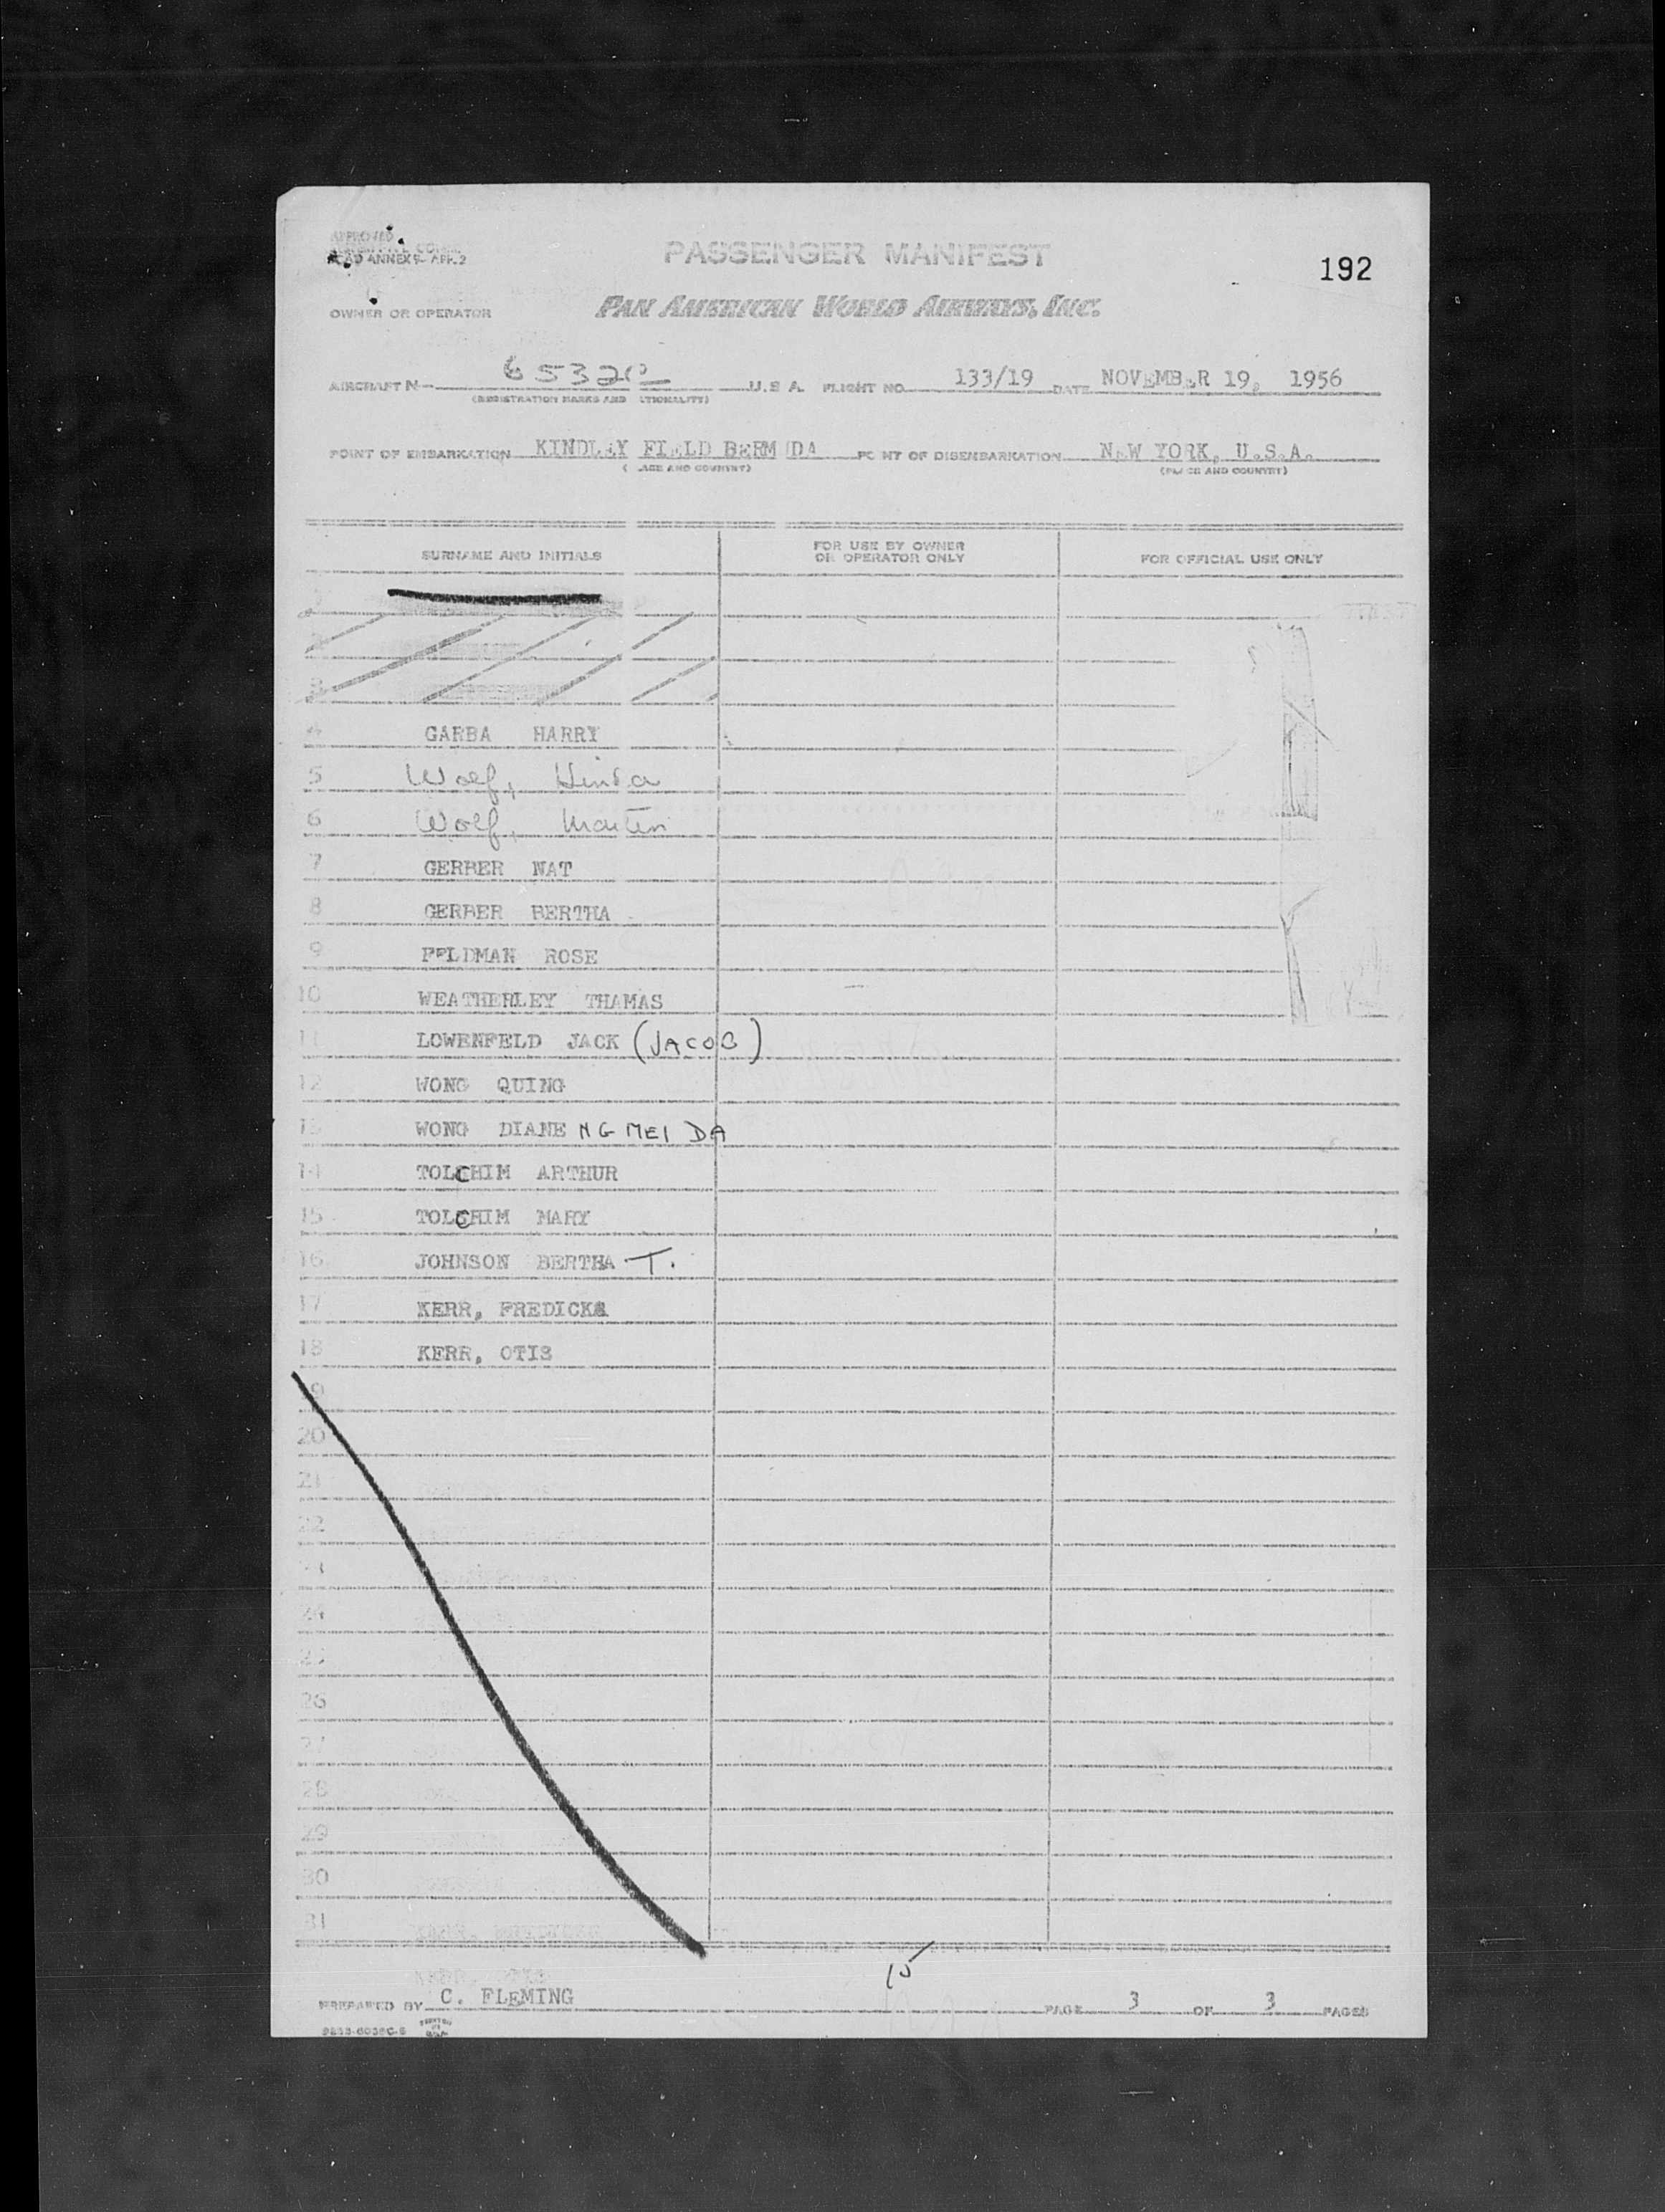 APPROVED
ICAO ANNEX 9- APP. 2
PASSENGER MANIFEST
192
OWNER OR OPERATOR
PAN AMERICAN WORLD AIRWAYS, INC.
AIRCRAFT N- U.S.A. FLIGHT NO. 133/19 DATE NOVEMBER 19, 1956
(REGISTRATION MARKS AND TIONALITY)
POINT OF EMBARKATION KINDLEY FIELD BERM DA PO NT OF DISEMBARKATION NEW YORK, U.S.A.
( ACE AND COUNTRY) (PLACE AND COUNTRY)
SURNAME AND INITIALS FOR USE BY OWNER OR OPERATOR ONLY FOR OFFICIAL USE ONLY
4 GARBA HARRY
5 Wolf, Linda
6 Wolf, Martin
7 GERBER NAT
8 GERBER BERTHA
9 FELDMAN ROSE
10 WEATHERLEY THAMAS
11 LOWENFELD JACK (JACOB)
12 WONG QUING
13 WONG DIANE NG MEI DA
14 TOLCHIM ARTHUR
15 TOLCHIM MARY
16 JOHNSON BERTHA T.
17 KERR, FREDICKA
18 KERR, OTIS
19
20
21
22
23
24
25
26
27
28
29
30
31
15
PREPARED BY C. FLEMING PAGE 3 OF 3 PAGES